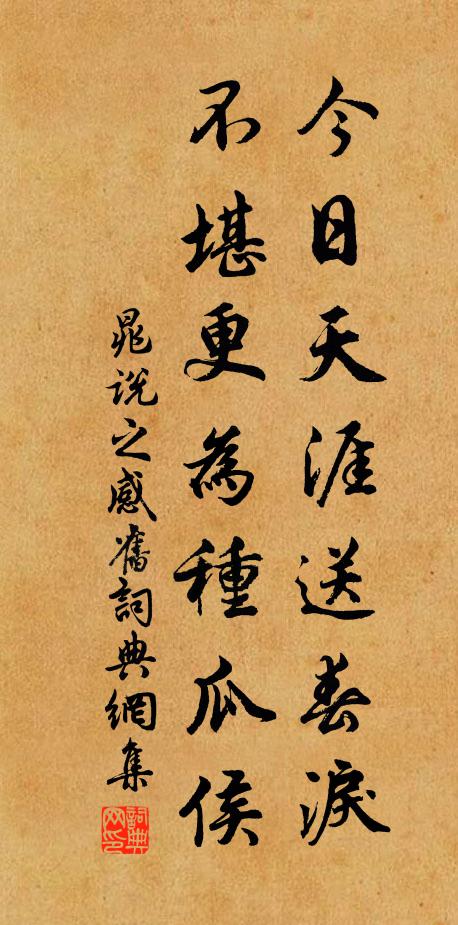 今日天涯送春淚
不堪更為種瓜侯
晁說之感舊詞典網集
詞典网印